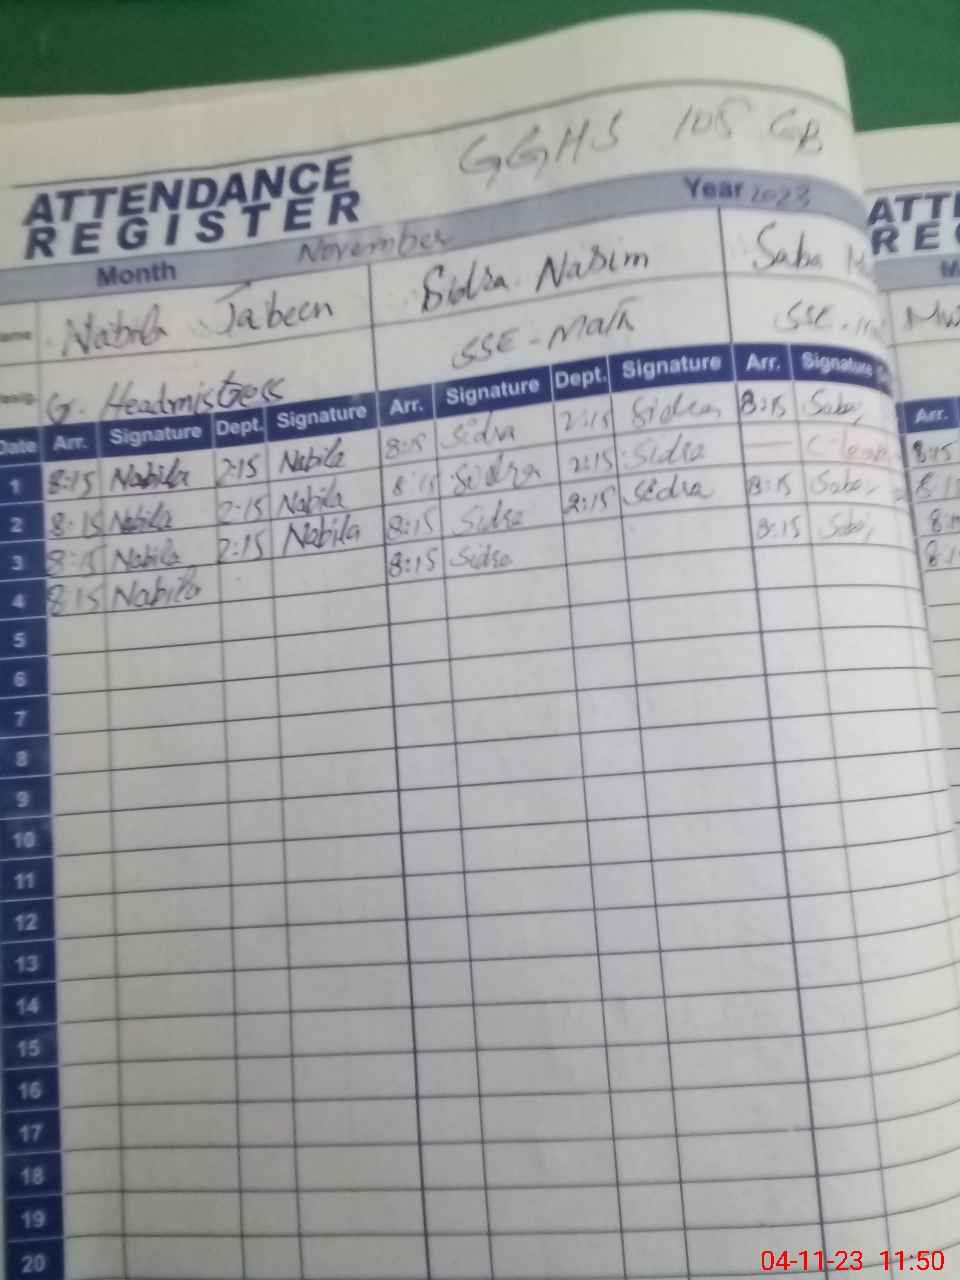 GGHS 105 GB
ATTENDANCE REGISTER
Year 2023
Month November
Name Nabila Jabeen Sidra Nasim Saba
G. Headmistress SSE - Math SSE -
Date Arr. Signature Dept. Signature Arr. Signature Dept. Signature Arr. Signature
1 8:15 Nabila 2:15 Nabila 8:15 Sidra 2:15 Sidra 8:15 Saba
2 8:15 Nabila 2:15 Nabila 8:15 Sidra 2:15 Sidra
3 8:15 Nabila 2:15 Nabila 8:15 Sidra 2:15 Sidra 8:15 Saba
4 8:15 Nabila 8:15 Sidra 8:15 Saba
5
6
7
8
9
10
11
12
13
14
15
16
17
18
19
20
ATT
RE
M
Arr.
8:15
04-11-23 11:50